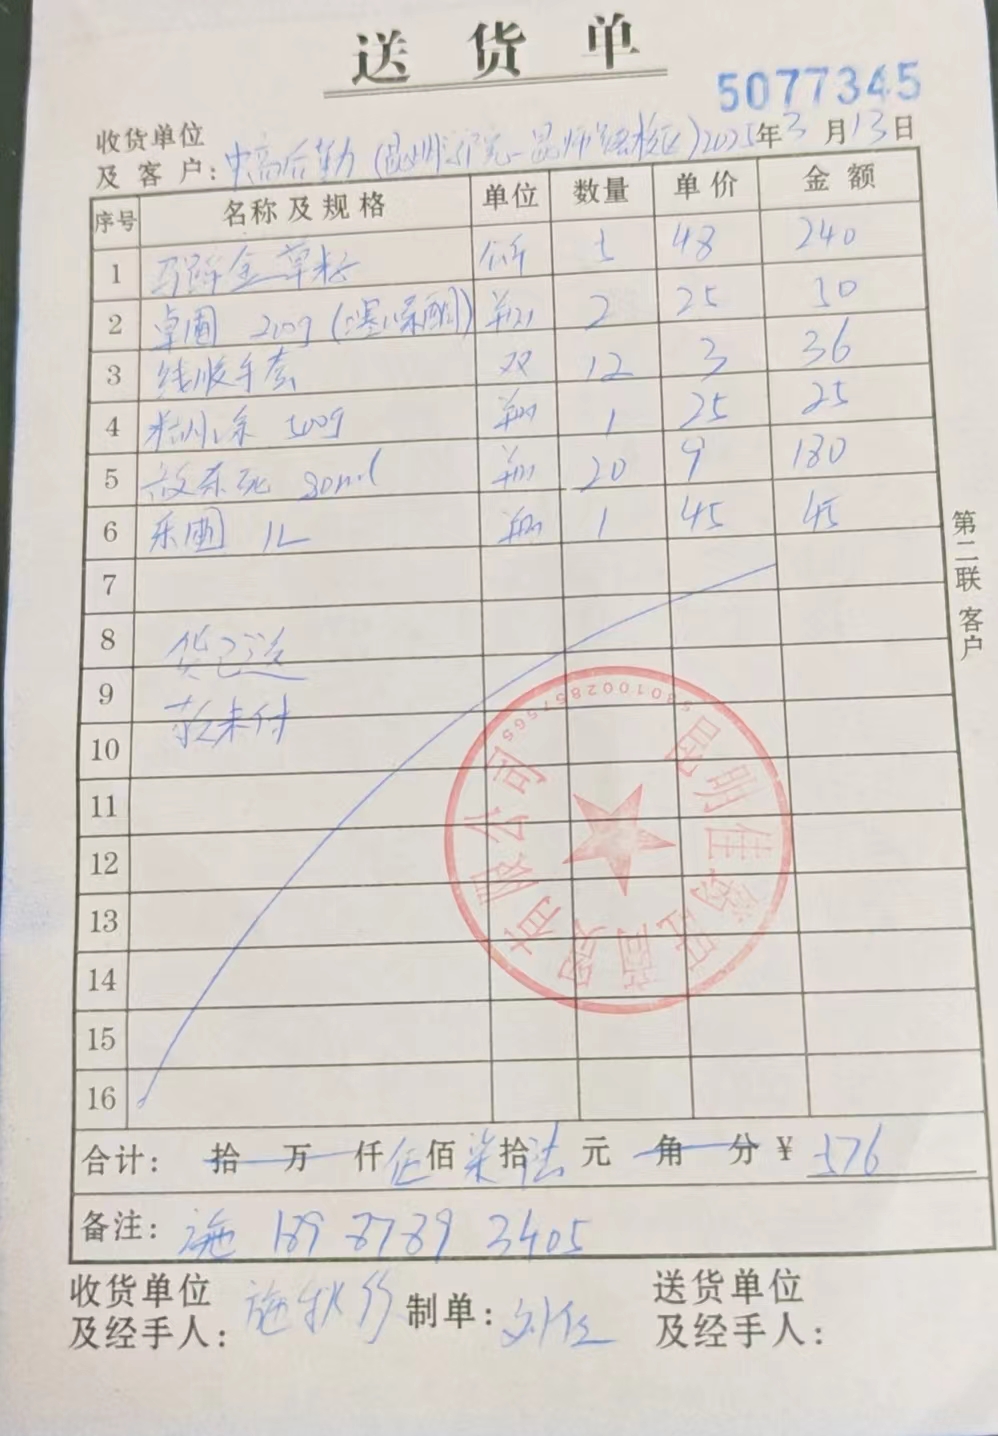 送货单
5077345
收货单位
及客户: 中高后勤 (昆明学院-昆师路校区) 2025年3月13日
序号 名称及规格 单位 数量 单价 金额
1 马蹄金草籽 公斤 5 48 240
2 卓圃 200g (噻霉酮) 瓶 2 25 50
3 线胶手套 双 12 3 36
4 500g 瓶 1 25 25
5 80ml 瓶 20 9 180
6 乐圃 1L 瓶 1 45 45
7
8 货已送
9
款未付
10
11
12
13
14
15
16
第二联 客户
昆明佳禽旺商贸有限公司
5301002857565
合计: 拾 万 仟 伍佰柒拾陆元 角 分 ¥ 576
备注: 施 189 8789 3405
收货单位
及经手人: 施秋
制单: 刘
送货单位
及经手人: